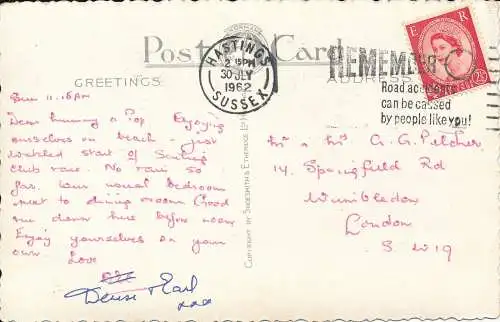 Post Card
GREETINGS
ADDRESS
HASTINGS
2 15PM
30 JLY
1962
SUSSEX
REMEMBER
Road accidents
can be caused
by people like you!
E R
2½D
Sun 11.15am
Dear Mummy & Pop Enjoying
ourselves on beach - just
watched start of Sailing
Club race. No rain so
far. Our usual bedroom
next to dining room Good
run down here before noon
Enjoy yourselves on your
own Love
Denise & Earl
xxx
Mr & Mrs A. G. Pelcher
14. Springfield Rd
Wimbledon
London
S.W.19
COPYRIGHT BY SHOESMITH & ETHERIDGE LTD